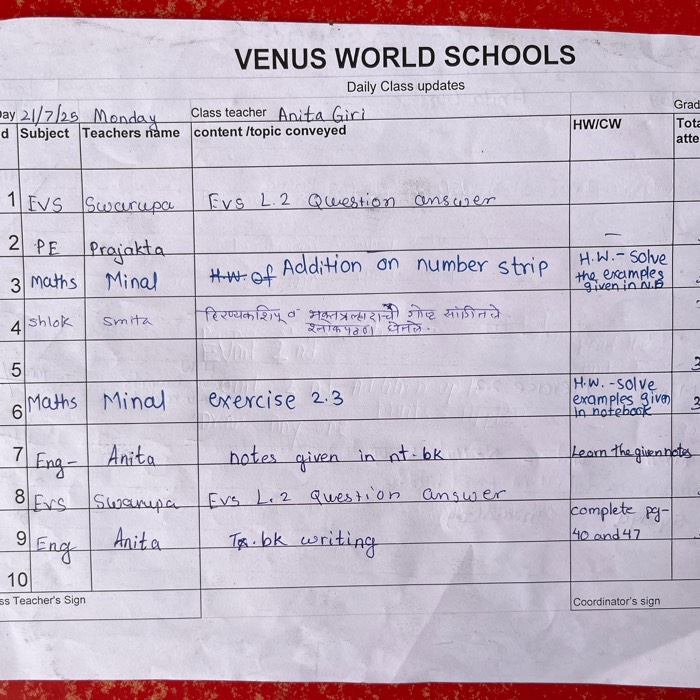 VENUS WORLD SCHOOLS
Daily Class updates
ay 21/7/25 Monday Class teacher Anita Giri Grad
d Subject Teachers name content /topic conveyed HW/CW Tota
atte
1 EVS Swarupa Evs L.2 Question answer
2 PE Prajakta —
3 Maths Minal H.W. of Addition on number strip H.W.- Solve
the examples
given in N.B
4 shlok smita हिरण्यकशिपू व भक्तप्रल्हादाची गोष्ट सांगितले
घेतले.
5 3
6 Maths Minal exercise 2.3 H.W. -solve
examples given
in notebook 3
7 Eng- Anita notes given in nt.bk Learn the given notes
8 Evs Swarupa Evs L.2 Question answer
9 Eng Anita Tx.bk writing complete pg-
40 and 47
10
ss Teacher's Sign Coordinator's sign